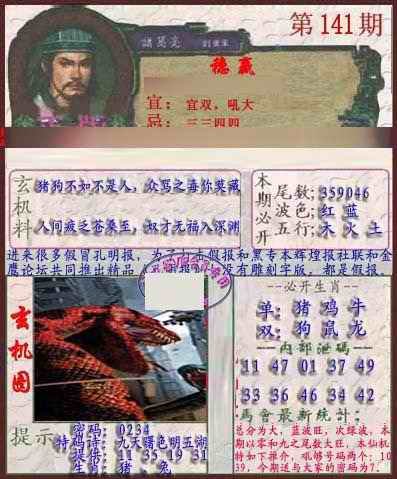 第141期
諸葛亮
穩贏
宜：宜双，吼大
忌：三三四四
玄机料
猪狗不如不是人，众骂之毒你莫藏
人间疲之苍桑至，奴才无福入深渊
本期必开
尾数：359046
波色：红 蓝
五行：木 火 土
进来很多假冒孔明报，为了打击假报和黑专本辉煌报社联和金
鹰论坛共同推出精品
没有雕刻字版，都是假报。
玄机图
--必开生肖--
单：猪 鸡 牛
双：狗 鼠 龙
--内部泄码--
11 47 01 37 49
33 36 46 34 42
馬會最新統計：
总分为大，蓝波旺，次绿波，本
期以零和九之尾数大旺，本仙机
特如下推介，吼够号码两个：10
39，今期送与大家的密码为7。
提示
密码：0234
特码诗：九天曙色明五湖
提供：11 35 19 31
生肖：猪、兔